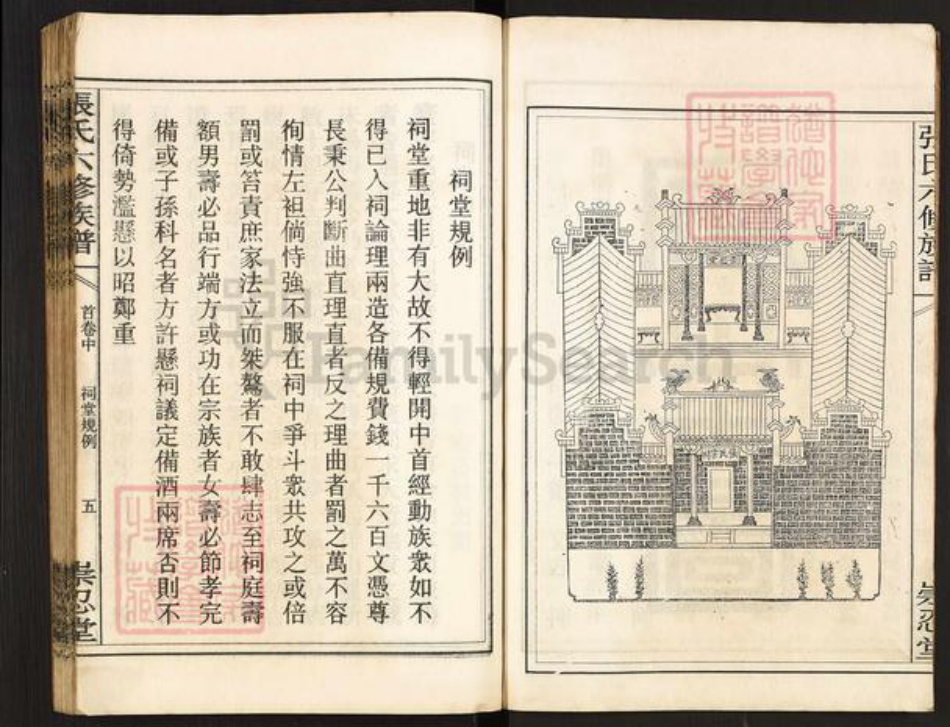 張氏六修族譜
崇忍堂
祠堂規例
祠堂重地非有大故不得輕開中首經動族衆如不
得已入祠論理兩造各備規費錢一千六百文憑尊
長秉公判斷曲直理直者反之理曲者罰之萬不容
徇情左袒倘恃強不服在祠中爭斗衆共攻之或倍
罰或笞責庶家法立而桀驁者不敢肆志至祠庭壽
額男壽必品行端方或功在宗族者女壽必節孝完
備或子孫科名者方許懸祠議定備酒兩席否則不
得倚勢濫懸以昭鄭重
張氏六修族譜
首卷中
祠堂規例
五
崇忍堂
FamilySearch